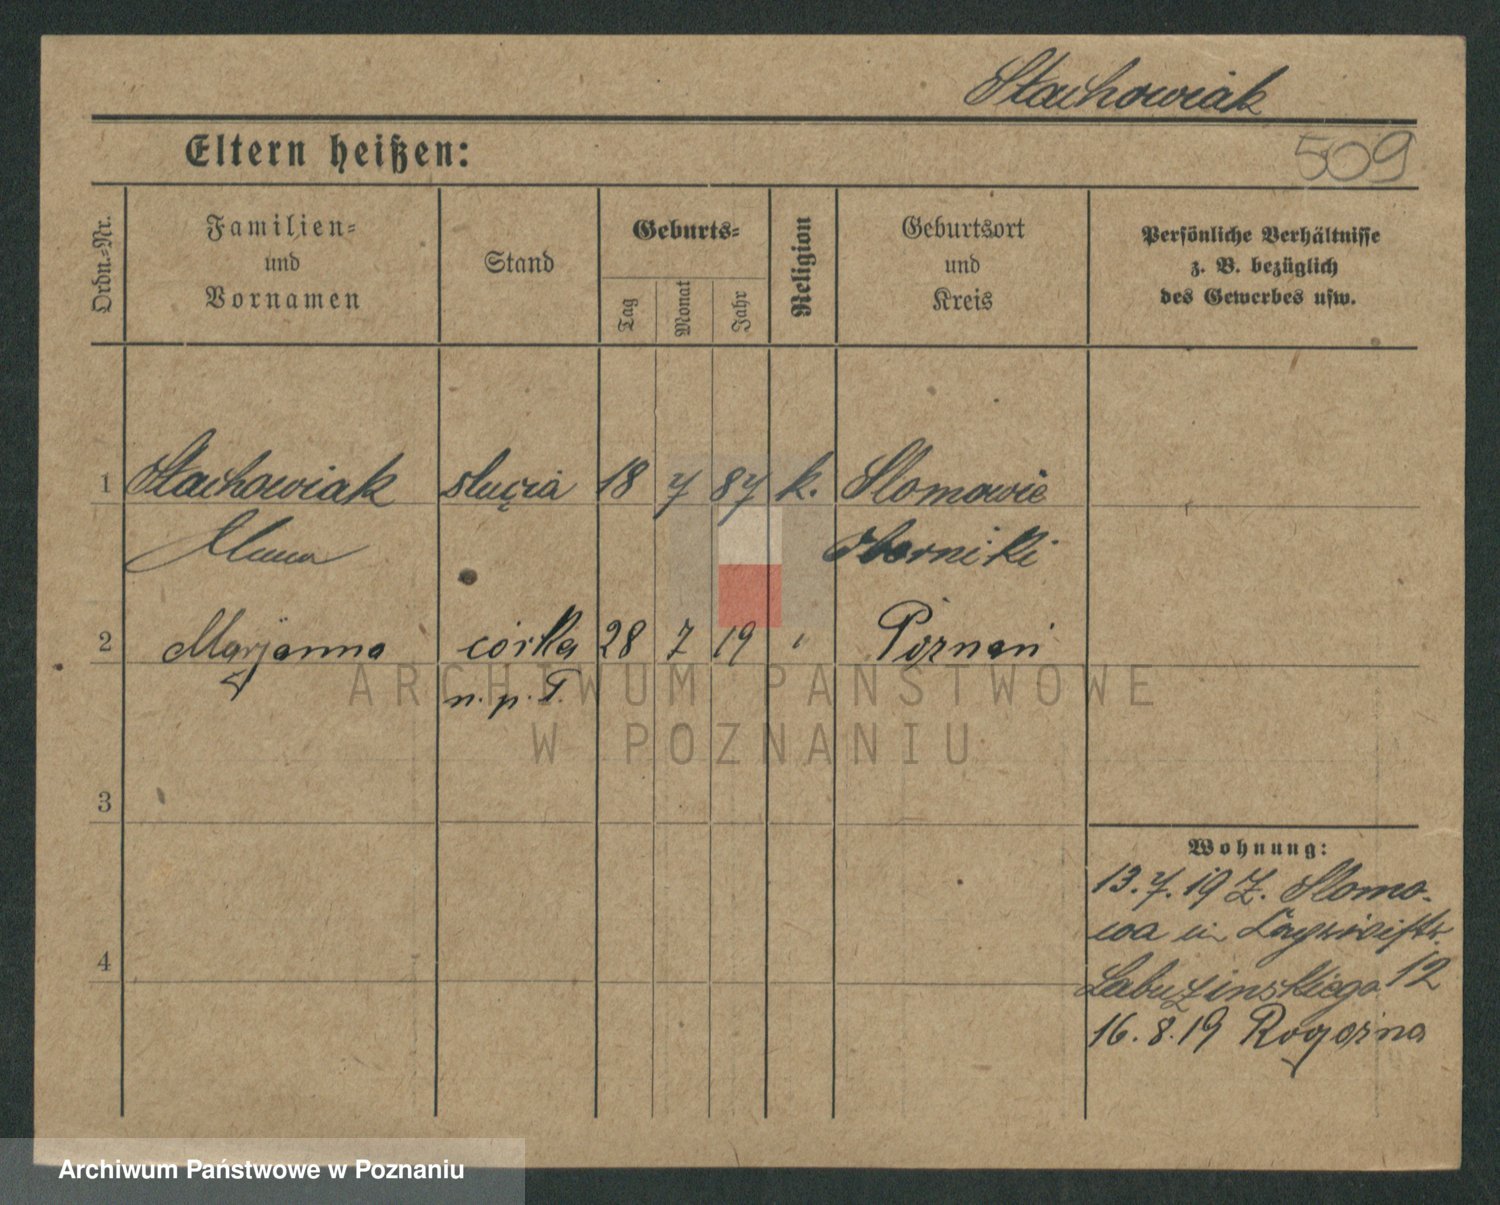 Stachowiak
Eltern heißen:
509
Ordn.-Nr.
Familien-
und
Vornamen
Stand
Geburts-
Tag
Monat
Jahr
Religion
Geburtsort
und
Kreis
Persönliche Verhältnisse
z. B. bezüglich
des Gewerbes usw.
1 Stachowiak 18 7 87 k. Słomowie
Oborniki
2 Marjanna córka 28 7 19 " Poznań
n. p. T.
ARCHIWUM PAŃSTWOWE
W POZNANIU
3
Wohnung:
13.7.19 Z. Słomo-
wa
4
12
16.8.19 Rogoźna
Archiwum Państwowe w Poznaniu